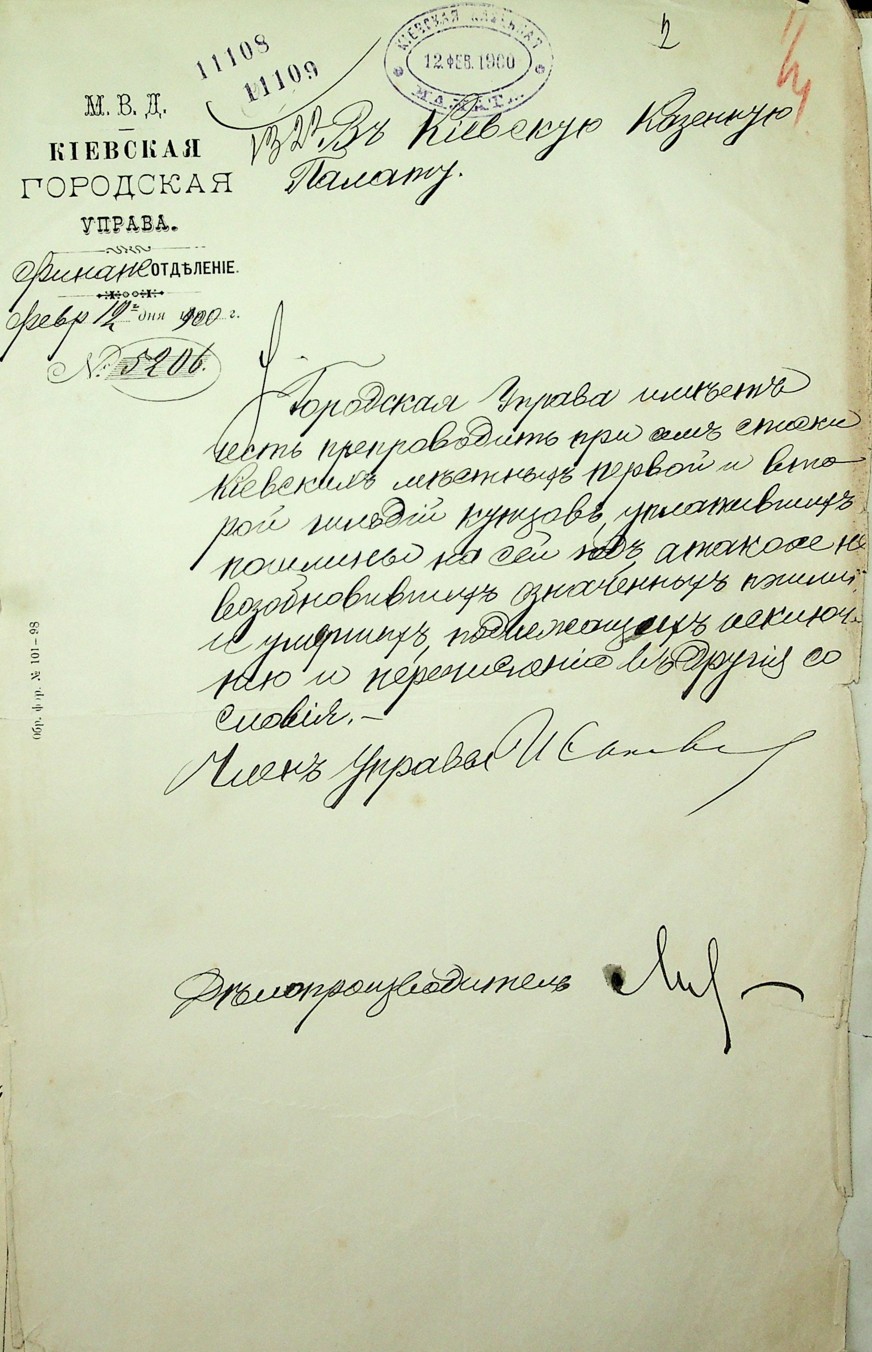 11108
11109
КІЕВСКАЯ КАЗЕННАЯ
12 ФЕВ. 1900
ПАЛАТА
2
М. В. Д.
КІЕВСКАЯ
ГОРОДСКАЯ
УПРАВА.
Финанс ОТДѢЛЕНІЕ.
Февр 12 дня 1900 г.
№ 5206.
Обр. фор. № 101–98
Въ Кіевскую Казенную
Палату.
Городская Управа имѣетъ
честь препроводить при семъ списки
Кіевскимъ мѣстныхъ первой и вто
рой гильдій купцовъ, уплатившихъ
пошлины на сей годъ, а также не
возобновившихъ означенныхъ пошлин
и умершихъ, подлежащихъ исключе
нію и перечисленію въ другія со
словія.—
Членъ Управы
Дѣлопроизводитель